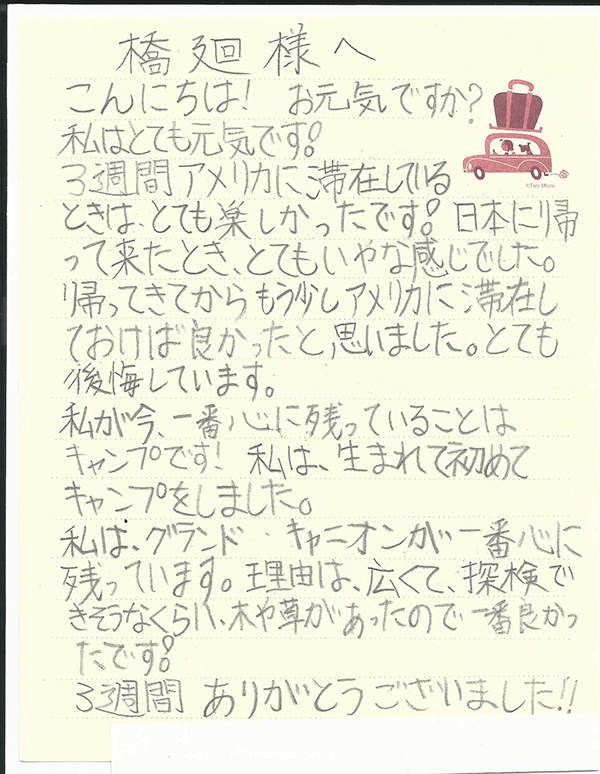 橋廻様へ
こんにちは! お元気ですか?
私はとても元気です!
3週間アメリカに滞在している
ときは、とても楽しかったです! 日本に帰
って来たとき、とてもいやな感じでした。
帰ってきてからもう少しアメリカに滞在し
ておけば良かったと思いました。とても
後悔しています。
私が今、一番心に残っていることは
キャンプです! 私は、生まれて初めて
キャンプをしました。
私は、グランド・キャニオンが一番心に
残っています。理由は、広くて、探検で
きそうなくらい、木や草があったので一番良かっ
たです!
3週間 ありがとうございました!!
©Taro Miura